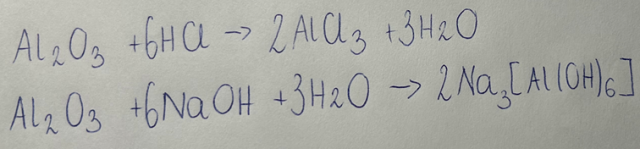 Al₂O₃ +6HCl → 2AlCl₃ +3H₂O
Al₂O₃ +6NaOH +3H₂O → 2Na₃[Al(OH)₆]